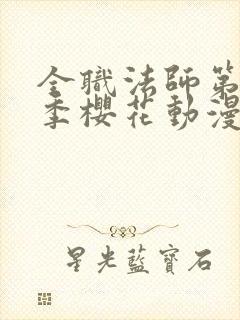 全職法師第
季櫻花動漫
星光藍寶石